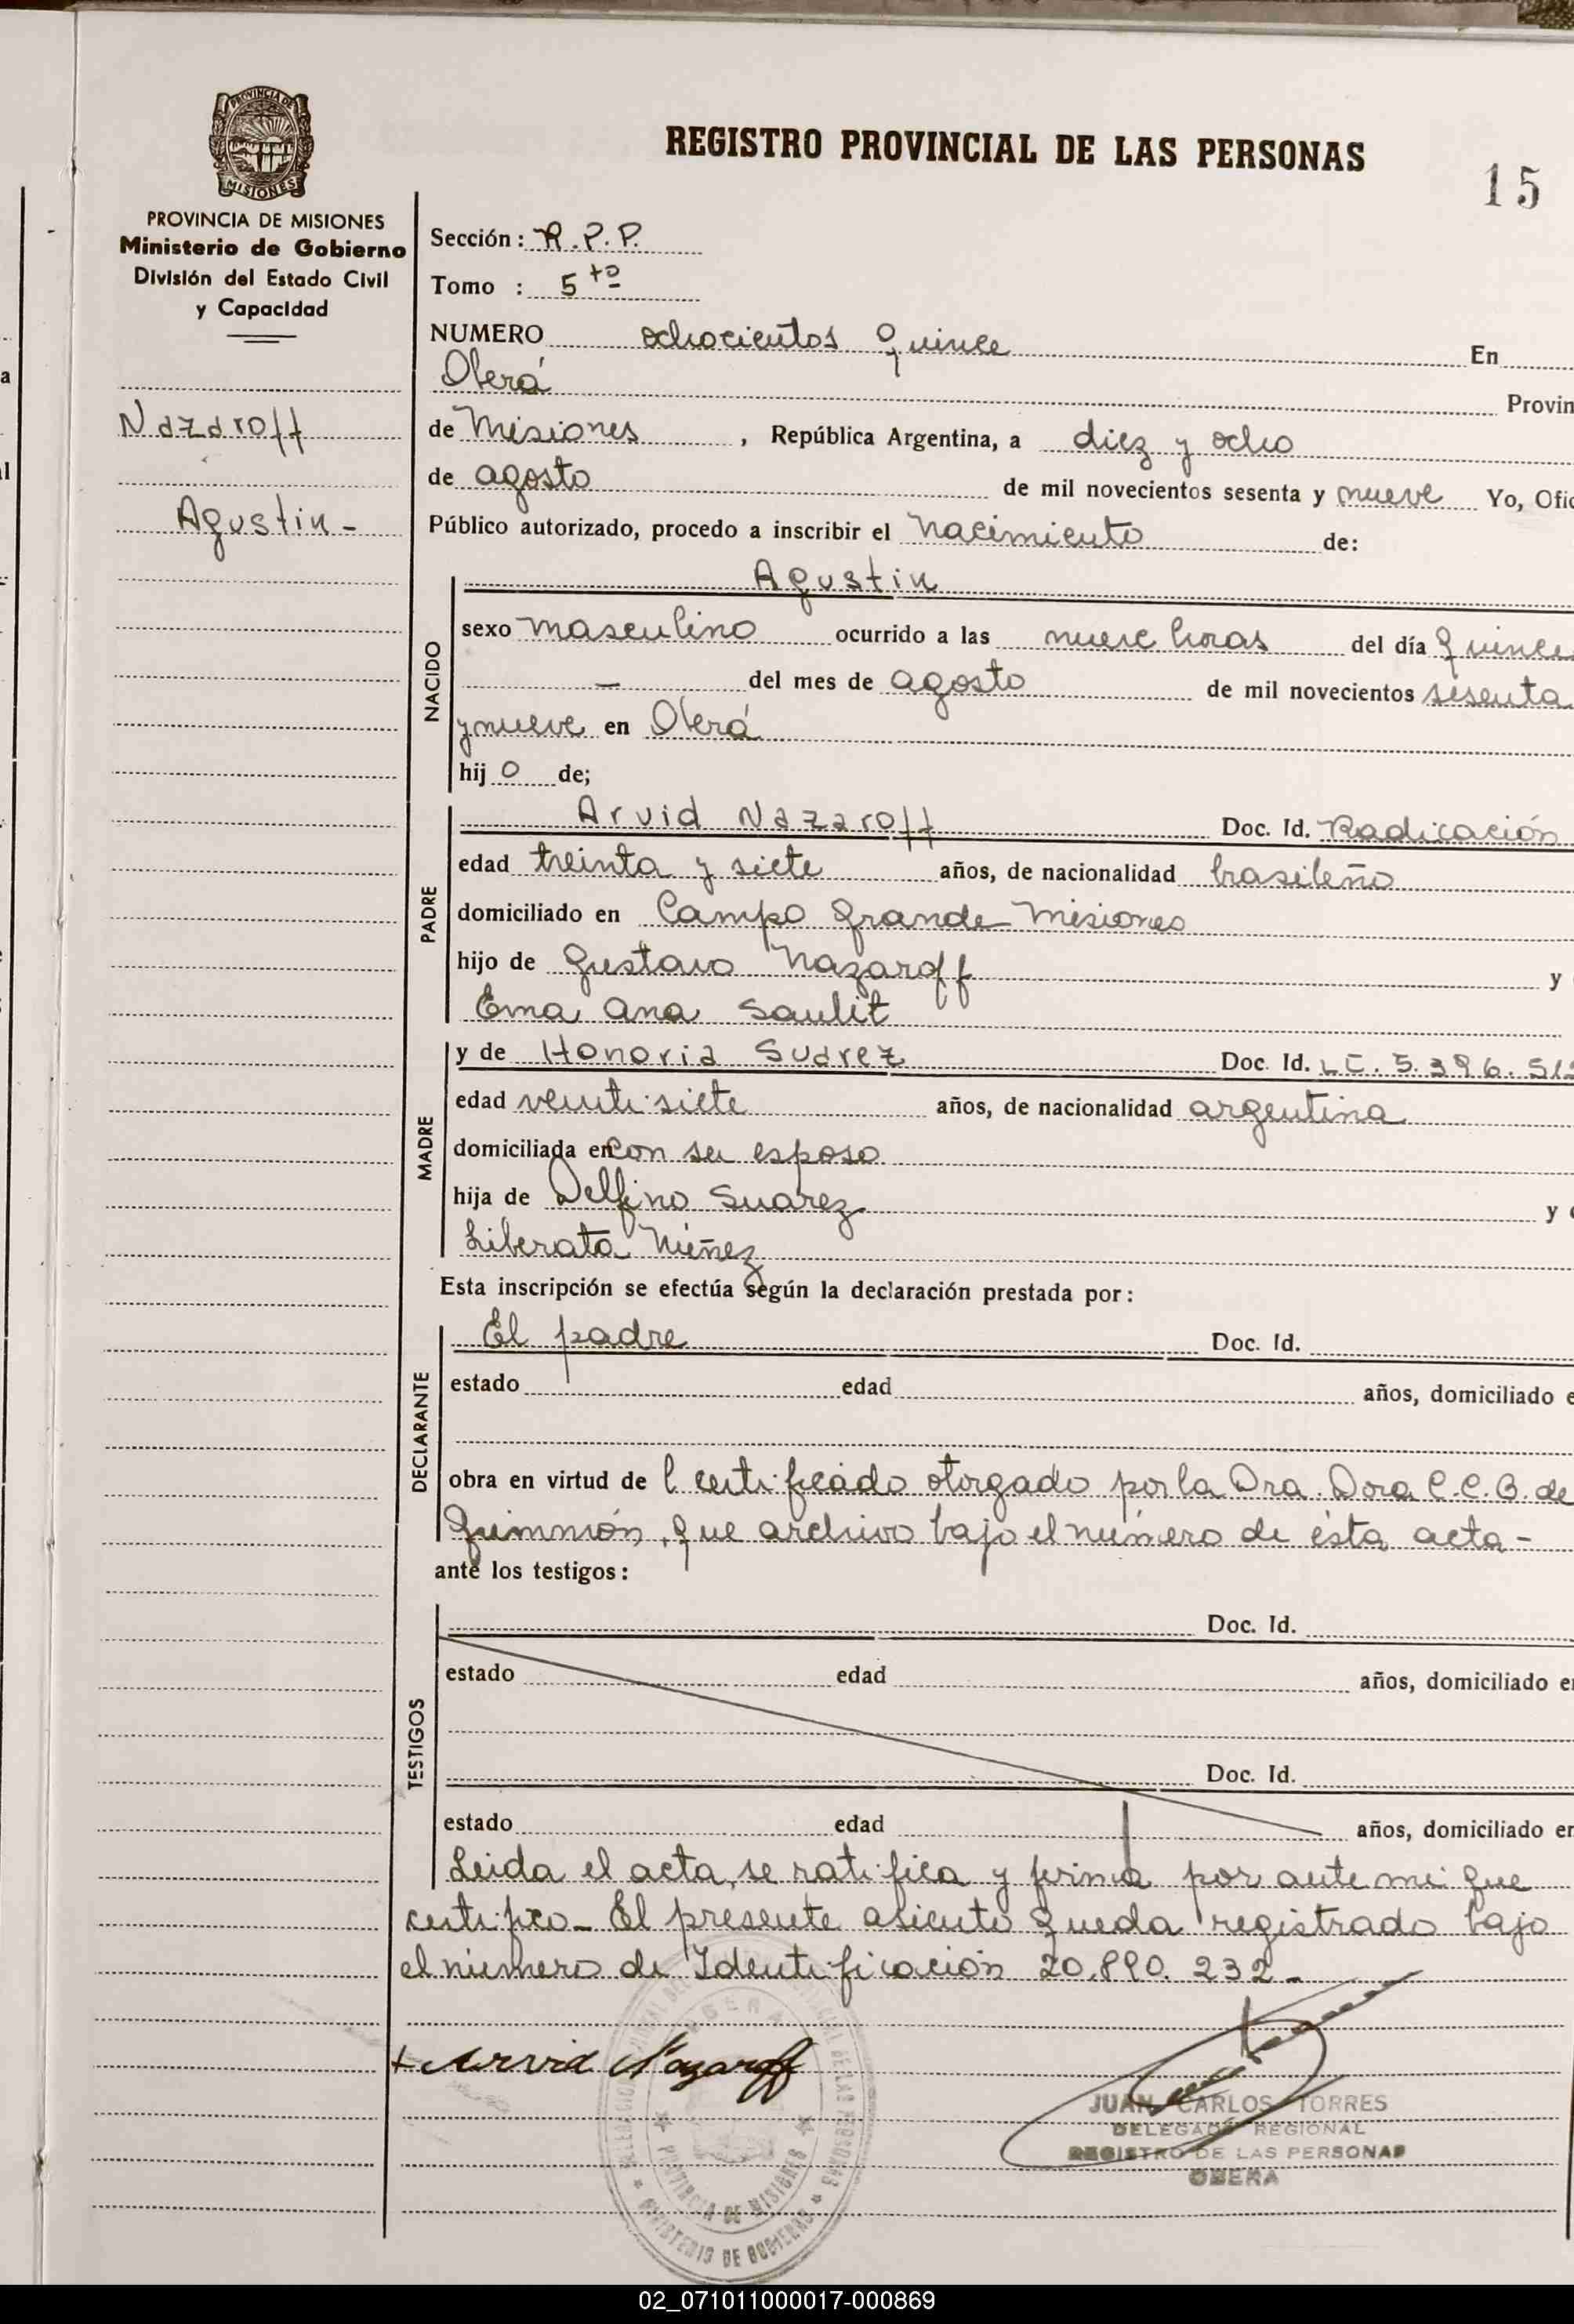 REGISTRO PROVINCIAL DE LAS PERSONAS
15
PROVINCIA DE MISIONES
PROVINCIA DE MISIONES
Ministerio de Gobierno
División del Estado Civil
y Capacidad
Nazaroff
Agustin-
Sección: R.P.P.
Tomo : 5to
NUMERO ochocientos quince En
Oberá Provin
de Misiones, República Argentina, a diez y ocho
de agosto de mil novecientos sesenta y nueve Yo, Ofic
Público autorizado, procedo a inscribir el nacimiento de:
NACIDO
Agustin
sexo masculino ocurrido a las nueve horas del día quince
— del mes de agosto de mil novecientos sesenta
y nueve en Oberá
hij o de;
PADRE
Arvid Nazaroff Doc. Id. Radicación
edad treinta y siete años, de nacionalidad brasileño
domiciliado en Campo Grande Misiones
hijo de Gustavo Nazaroff y
Ema Ana Saulit
MADRE
y de Honoria Suarez Doc. Id. LC. 5.396.51
edad veinti siete años, de nacionalidad argentina
domiciliada en con su esposo
hija de Delfino Suarez y
Liberata Núñez
Esta inscripción se efectúa según la declaración prestada por:
DECLARANTE
El padre Doc. Id.
estado edad años, domiciliado e
obra en virtud de l certificado otorgado por la Dra. Dora C.C.B. de
que archivo bajo el número de ésta acta-
ante los testigos:
TESTIGOS
Doc. Id.
estado edad años, domiciliado en
Doc. Id.
estado edad años, domiciliado en
Leida el acta, se ratifica y firma por ante mi que
certifico- El presente asiento queda registrado bajo
el número de Identificación 20.890.232-
Arvid Nazaroff
JUAN CARLOS TORRES
DELEGADO REGIONAL
REGISTRO DE LAS PERSONAS
OBERA
PROVINCIA DE MISIONES
MINISTERIO DE GOBIERNO
02_071011000017-000869